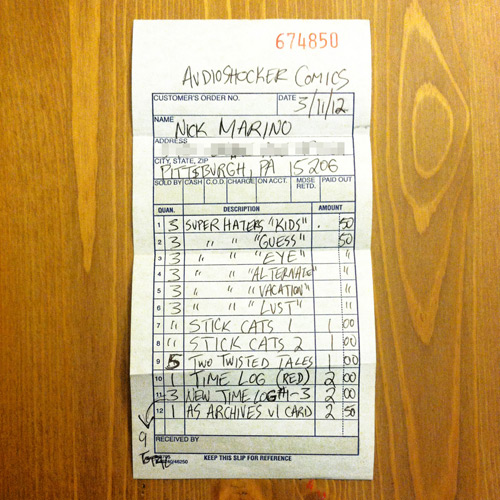 674850
AUDIOSHOCKER COMICS
CUSTOMER'S ORDER NO. DATE 3/11/12
NAME NICK MARINO
ADDRESS
CITY, STATE, ZIP PITTSBURGH, PA 15206
SOLD BY CASH C.O.D. CHARGE ON ACCT. MDSE RETD. PAID OUT
QUAN. DESCRIPTION AMOUNT
1 3 SUPER HATERS "KIDS" . 50
2 3 " " "GUESS" 50
3 3 " " "EYE" "
4 3 " " "ALTERNATE" "
5 3 " " "VACATION" "
6 3 " " "LUST" "
7 " STICK CATS 1 1 00
8 " STICK CATS 2 1 00
9 5 TWO TWISTED TALES 1 00
10 1 TIME LOG (RED) 2 00
11 3 NEW TIME LOG #1-3 2 00
12 1 AS ARCHIVES V1 CARD 2 50
RECEIVED BY
9 TOTAL
KEEP THIS SLIP FOR REFERENCE